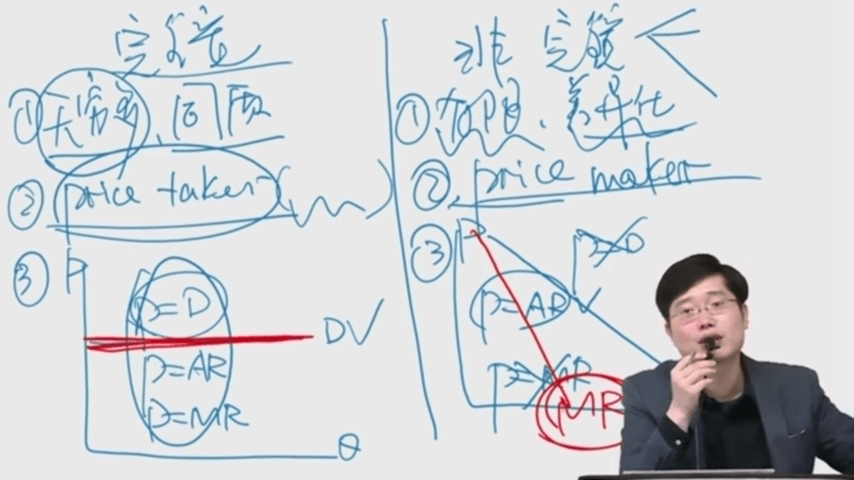 完竞
① 无穷多、同质
② price taker
③ P
P=D
DV
P=AR
P=MR
Q
非完竞
① 有限、差异化
② price maker
③ P
P=D
P=AR V
P=MR
MR